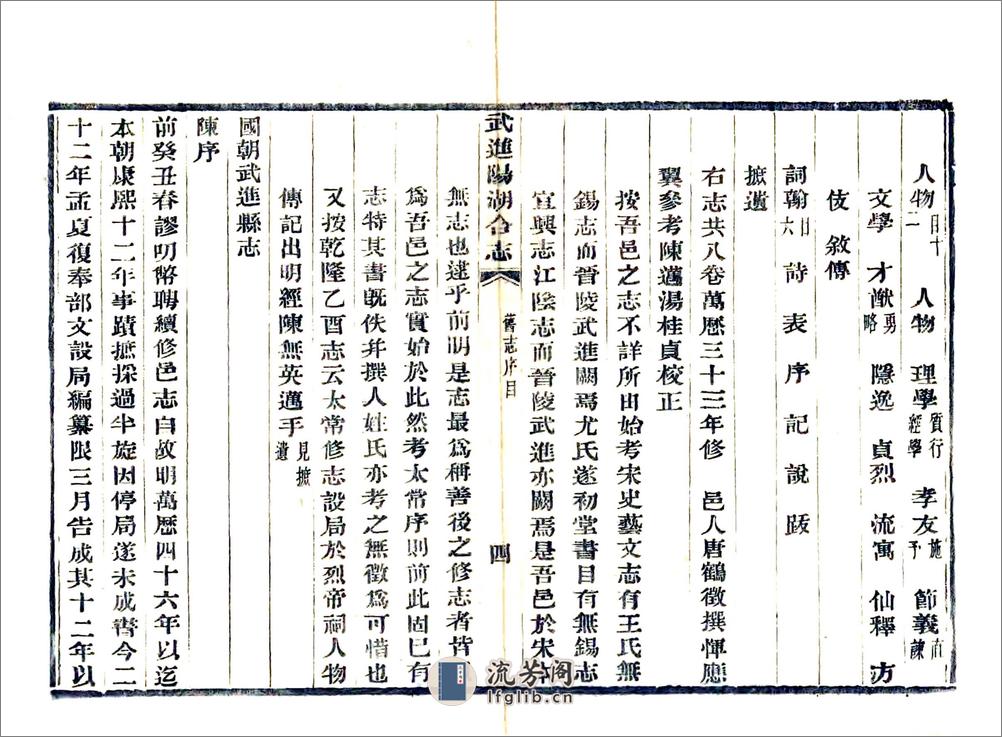 人物目十二　人物　理學質行經學　孝友施予　節義直諫
文學　才猷勇略　隱逸　貞烈　流寓　仙釋　方
伎　敘傳
詞翰目六　詩　表　序　記　說　跋
摭遺
右志共八卷萬歷三十三年修　邑人唐鶴徵撰惲應
翼參考陳邁湯桂貞校正
按吾邑之志不詳所由始考宋史藝文志有王氏無
錫志而晉陵武進闕焉尤氏遂初堂書目有無錫志
宜興志江陰志而晉陵武進亦闕焉是吾邑於宋本
武進陽湖合志　舊志序目　四
無志也逮乎前明是志最爲稱善後之修志者皆
爲吾邑之志實始於此然考太常序則前此固已有
志特其書既佚并撰人姓氏亦考之無徵爲可惜也
又按乾隆乙酉志云太常修志設局於烈帝祠人物
傳記出明經陳無英邁手見摭遺
國朝武進縣志
陳序
前癸丑春謬叨幣聘續修邑志自故明萬歷四十六年以迄
本朝康熙十二年事蹟摭採過半旋因停局遂未成書今二
十二年孟夏復奉部文設局編纂限三月告成其十二年以
流芳阁
lfglib.cn